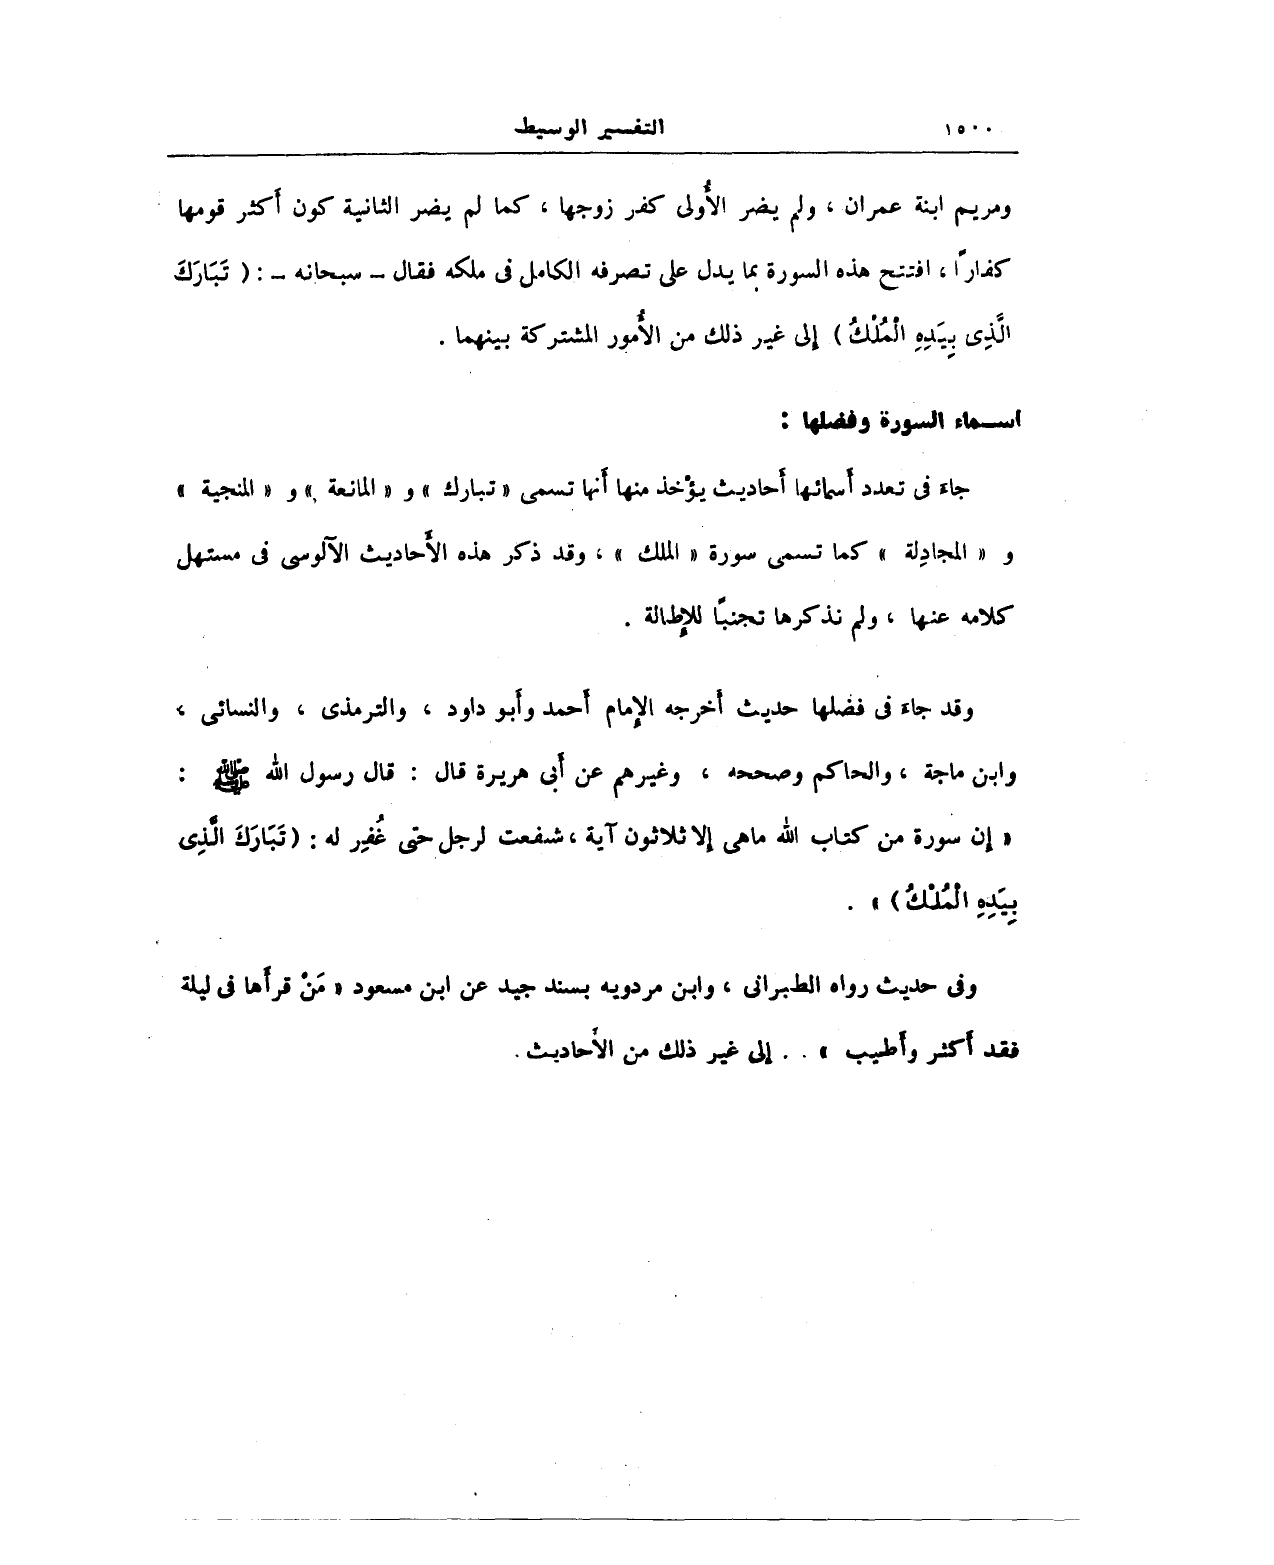 ١٥٠٠ التفسير الوسيط
ومريم ابنة عمران ، ولم يضر الأُولى كفر زوجها ، كما لم يضر الثانية كون أكثر قومها
كفارًا ، افتتح هذه السورة بما يدل على تصرفه الكامل فى ملكه فقال – سبحانه – : ( تَبَارَكَ
الَّذِى بِيَدِهِ الْمُلْكُ ) إلى غير ذلك من الأُمور المشتركة بينهما .
اسماء السورة وفضلها :
جاءَ فى تعدد أسمائها أحاديث يؤْخذ منها أنها تسمى « تبارك » و « المانعة » و « المنجية »
و « المجادِلة » كما تسمى سورة « الملك » ، وقد ذكر هذه الأَحاديث الآلوسى فى مستهل
كلامه عنها ، ولم نذكرها تجنبًا للإطالة .
وقد جاءَ فى فضلها حديث أخرجه الإمام أحمد وأبو داود ، والترمذى ، والنسائى ،
وابن ماجة ، والحاكم وصححه ، وغيرهم عن أبى هريرة قال : قال رسول الله ﷺ :
« إن سورة من كتاب الله ماهى إلا ثلاثون آية ، شفعت لرجل حتى غُفِر له : ( تَبَارَكَ الَّذِى
بِيَدِهِ الْمُلْكُ ) » .
وفى حديث رواه الطبرانى ، وابن مردويه بسند جيد عن ابن مسعود « مَنْ قرأَها فى ليلة
فقد أكثر وأطيب » . . إلى غير ذلك من الأَحاديث .